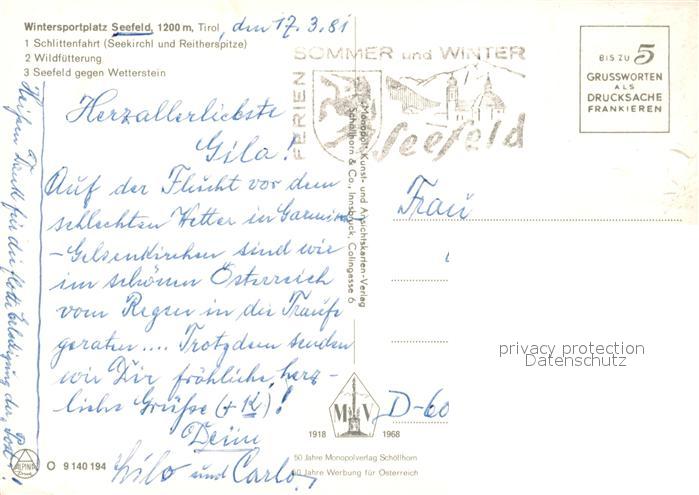 Wintersportplatz Seefeld, 1200 m, Tirol, den 17. 3. 81
1 Schlittenfahrt (Seekirchl und Reitherspitze)
2 Wildfütterung
3 Seefeld gegen Wetterstein
FERIEN
SOMMER und WINTER
Seefeld
BIS ZU 5
GRUSSWORTEN
ALS
DRUCKSACHE
FRANKIEREN
Herzallerliebste
Gila!
Auf der Flucht vor dem
schlechten Wetter in Garmisch
-Gelsenkirchen sind wir
im schönen Österreich
vom Regen in die Traufe
geraten.... Trotzdem senden
wir Dir fröhliche, herz-
liche Grüße (+ K)!
Deine
Lilo und Carlo
Heißen Dank für die flotte Erledigung der Post!
Monopol-Kunst- und Ansichtskarten-Verlag
Schöllhorn & Co., Innsbruck, Collingasse 6
Frau
privacy protection
Datenschutz
D-60
M V
1918 1968
50 Jahre Monopolverlag Schöllhorn
50 Jahre Werbung für Österreich
ALPINA
O 9 140 194